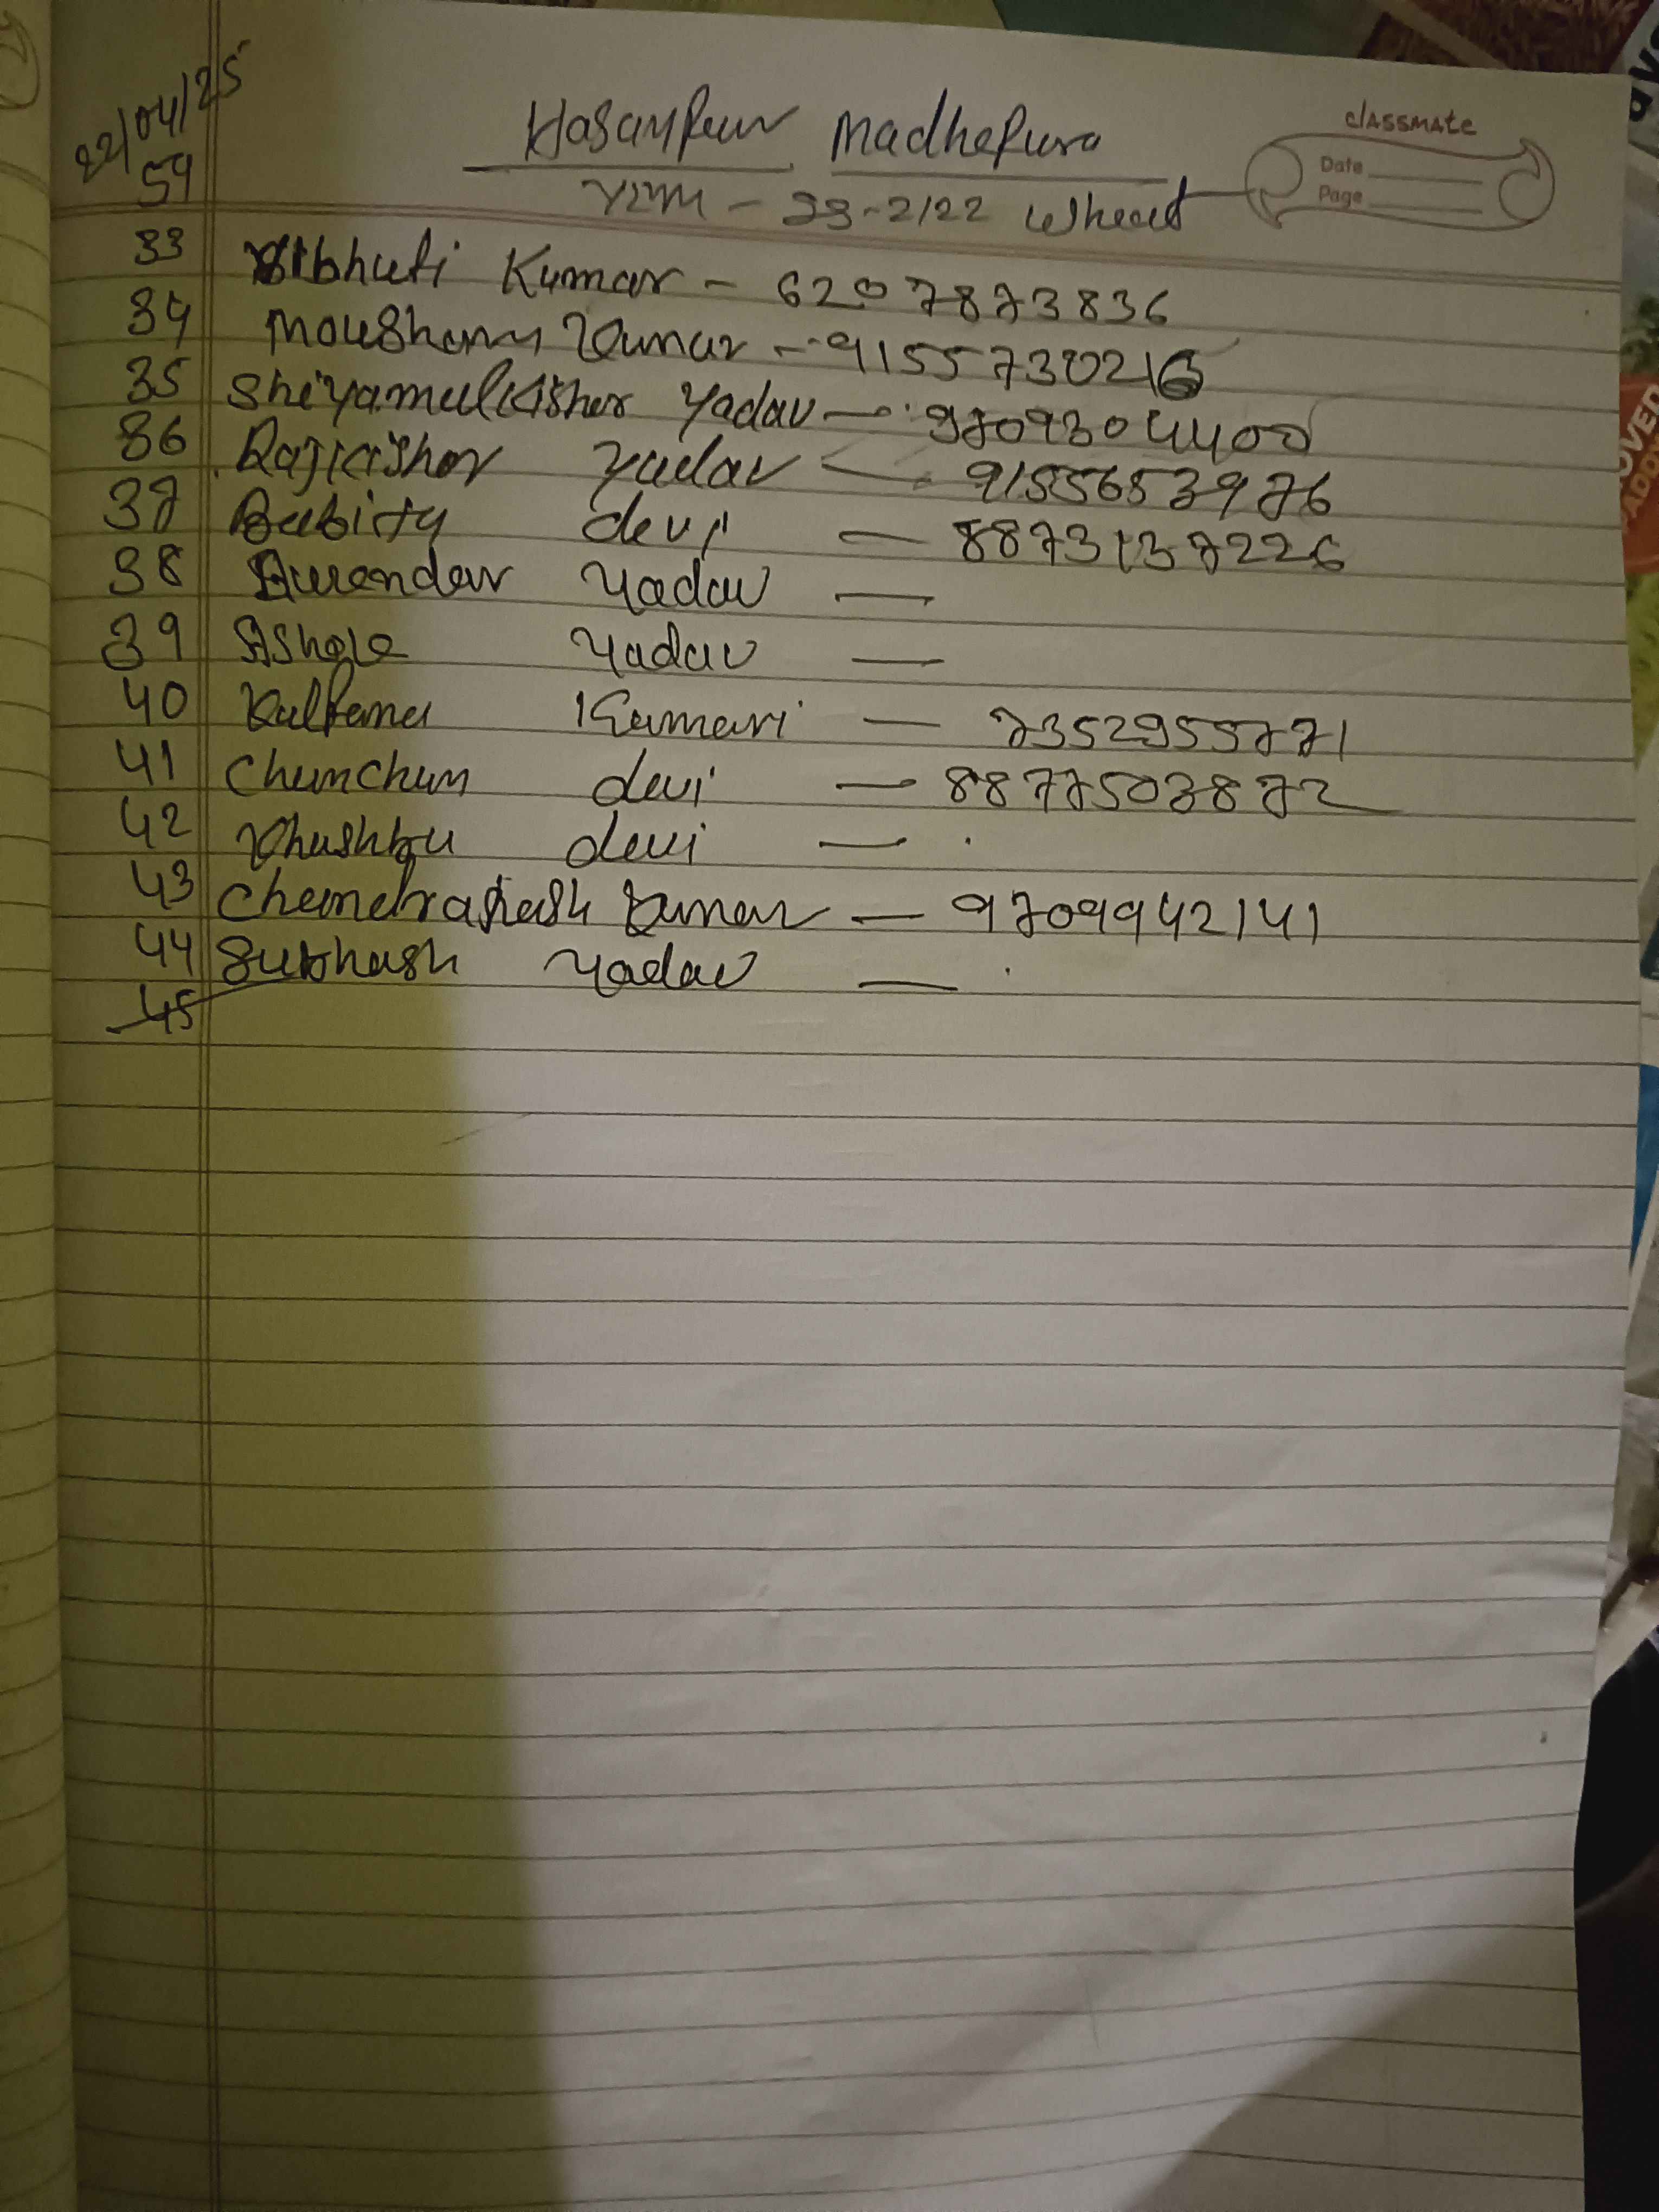 22/04/25
59
Hasanpur Madhepura
classmate
Date
Page
Wheat
33 Vibhuti Kumar - 6207873836
34 Mousham Kumar - 9155730216
35 Shiyamulkishor Yadav - 9709304400
36 Rajkishor Yadav - 9155653976
37 Babity devi - 8873137226
38 Surendar Yadav -
39 Ashok Yadav -
40 Kalpana Kumari - 7352955771
41 Chunchun devi - 8877503872
42 Khushbu devi -
43 Chandraprakash Kumar - 9709942141
44 Subhash Yadav -
45